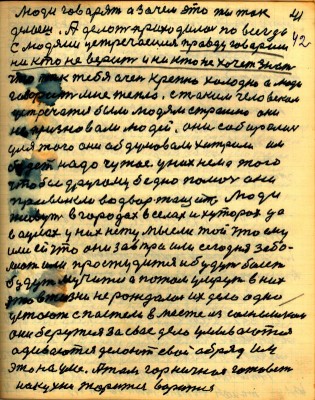 Люди говорят а зачем это ты так 41
делаеш. А делот приходилос по всюду 42
С людями устречатся правду говорит
ни кто не верит и ни кто не хочет знат
что так тебя очен крепко холодно а люди
говорит мне тепло. с таким человеком
устречатся было людям страшно они
не признавали людей. они собиралис
для того они абдумовали хитрили им
будет надо чужае. у них нема этого
чтобы другому бедно помоч они
привыкли водвор тащит. Люди
живут в городах в селах и хуторах да
в аулах у них нету мысли той что ему
или ей что они завтра или сегодня забо-
леют или простудится и будут болет
будут мучится а потом умрут в них
это в жизни не рождалос их дело одно
устают с пастели в месте из солнышком
они берутся за свае дело умываются
адиваются делают свой обряд им
это на уме. А там горничная готовит
на кухни жарится варится